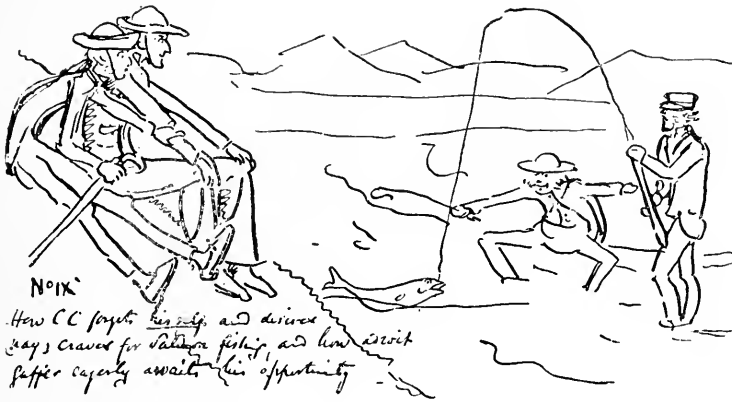 No IX
How CC forgets his and desires
nay, craves for salmon fishing, and how adroit
gaffer eagerly awaits his opportunity